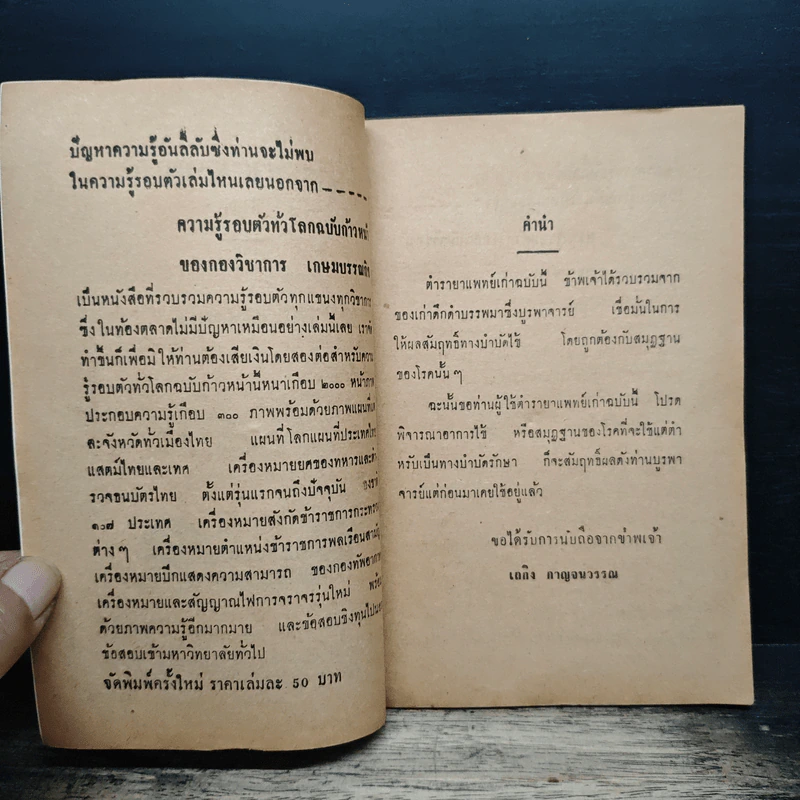 ปัญหาความรู้อันลี้ลับซึ่งท่านจะไม่พบ
ในความรู้รอบตัวเล่มไหนเลยนอกจาก _ _ _ _ _
ความรู้รอบตัวทั่วโลกฉบับก้าวหน้า
ของกองวิชาการ เกษมบรรณกิจ
เป็นหนังสือที่รวบรวมความรู้รอบตัวทุกแขนงทุกวิชาการ
ซึ่งในท้องตลาดไม่มีปัญหาเหมือนอย่างเล่มนี้เลย
ทำขึ้นก็เพื่อมิให้ท่านต้องเสียเงินโดยสองต่อสำหรับความ
รู้รอบตัวทั่วโลกฉบับก้าวหน้านี้หนาเกือบ ๒๐๐๐ หน้า
ประกอบความรู้เกือบ ๓๐๐ ภาพพร้อมด้วยภาพแผนที่
ละจังหวัดทั่วเมืองไทย แผนที่โลกแผนที่ประเทศไทย
แสตมป์ไทยและเทศ เครื่องหมายยศของทหารและ
รวจธนบัตรไทย ตั้งแต่รุ่นแรกจนถึงปัจจุบัน
๑๐๗ ประเทศ เครื่องหมายสังกัดข้าราชการกระทรวง
ต่างๆ เครื่องหมายตำแหน่งข้าราชการพลเรือนสามัญ
เครื่องหมายปีกแสดงความสามารถ ของกองทัพอากาศ
เครื่องหมายและสัญญาณไฟการจราจรรุ่นใหม่ พร้อม
ด้วยภาพความรู้อีกมากมาย และข้อสอบชิงทุนไป
ข้อสอบเข้ามหาวิทยาลัยทั่วไป
จัดพิมพ์ครั้งใหม่ ราคาเล่มละ 50 บาท
คำนำ
ตำรายาแพทย์เก่าฉบับนี้ ข้าพเจ้าได้รวบรวมจาก
ของเก่าดึกดำบรรพมาซึ่งบูรพาจารย์ เชื่อมั่นในการ
ให้ผลสัมฤทธิ์ทางบำบัดไข้ โดยถูกต้องกับสมุฏฐาน
ของโรคนั้น ๆ
ฉะนั้นขอท่านผู้ใช้ตำรายาแพทย์เก่าฉบับนี้ โปรด
พิจารณาอาการไข้ หรือสมุฏฐานของโรคที่จะใช้แต่ตำ
หรับเป็นทางบำบัดรักษา ก็จะสัมฤทธิ์ผลดังท่านบูรพา
จารย์แต่ก่อนมาเคยใช้อยู่แล้ว
ขอได้รับการนับถือจากข้าพเจ้า
เถกิง กาญจนวรรณ